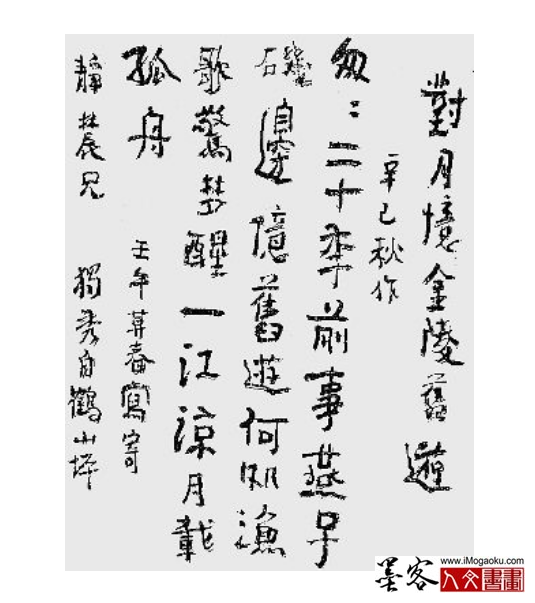 對月憶金陵舊遊
辛巳秋作
匆匆二十年前事燕子
磯邊憶舊遊何処漁
歌驚梦醒一江涼月載
孤舟 壬午莫春寫寄
靜農兄 獨秀自鶴山坪
墨客
www.iMogaoku.com
人文書畫